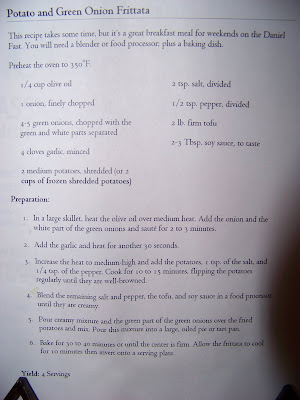 Potato and Green Onion Frittata
This recipe takes some time, but it's a great breakfast meal for weekends on the Daniel
Fast. You will need a blender or food processor, plus a baking dish.
Preheat the oven to 350°F.
1/4 cup olive oil
1 onion, finely chopped
4-5 green onions, chopped with the
green and white parts separated
4 cloves garlic, minced
2 medium potatoes, shredded (or 2
cups of frozen shredded potatoes)
2 tsp. salt, divided
1/2 tsp. pepper, divided
2 lb. firm tofu
2-3 Tbsp. soy sauce, to taste
Preparation:
1. In a large skillet, heat the olive oil over medium heat. Add the onion and the
white part of the green onions and sauté for 2 to 3 minutes.
2. Add the garlic and heat for another 30 seconds.
3. Increase the heat to medium-high and add the potatoes, 1 tsp. of the salt, and
1/4 tsp. of the pepper. Cook for 10 to 15 minutes, flipping the potatoes
regularly until they are well-browned.
4. Blend the remaining salt and pepper, the tofu, and soy sauce in a food processor
until they are creamy.
5. Pour creamy mixture and the green part of the green onions over the fried
potatoes and mix. Pour this mixture into a large, oiled pie or tart pan.
6. Bake for 30 to 40 minutes or until the center is firm. Allow the frittata to cool
for 10 minutes then invert onto a serving plate.
Yield: 4 Servings